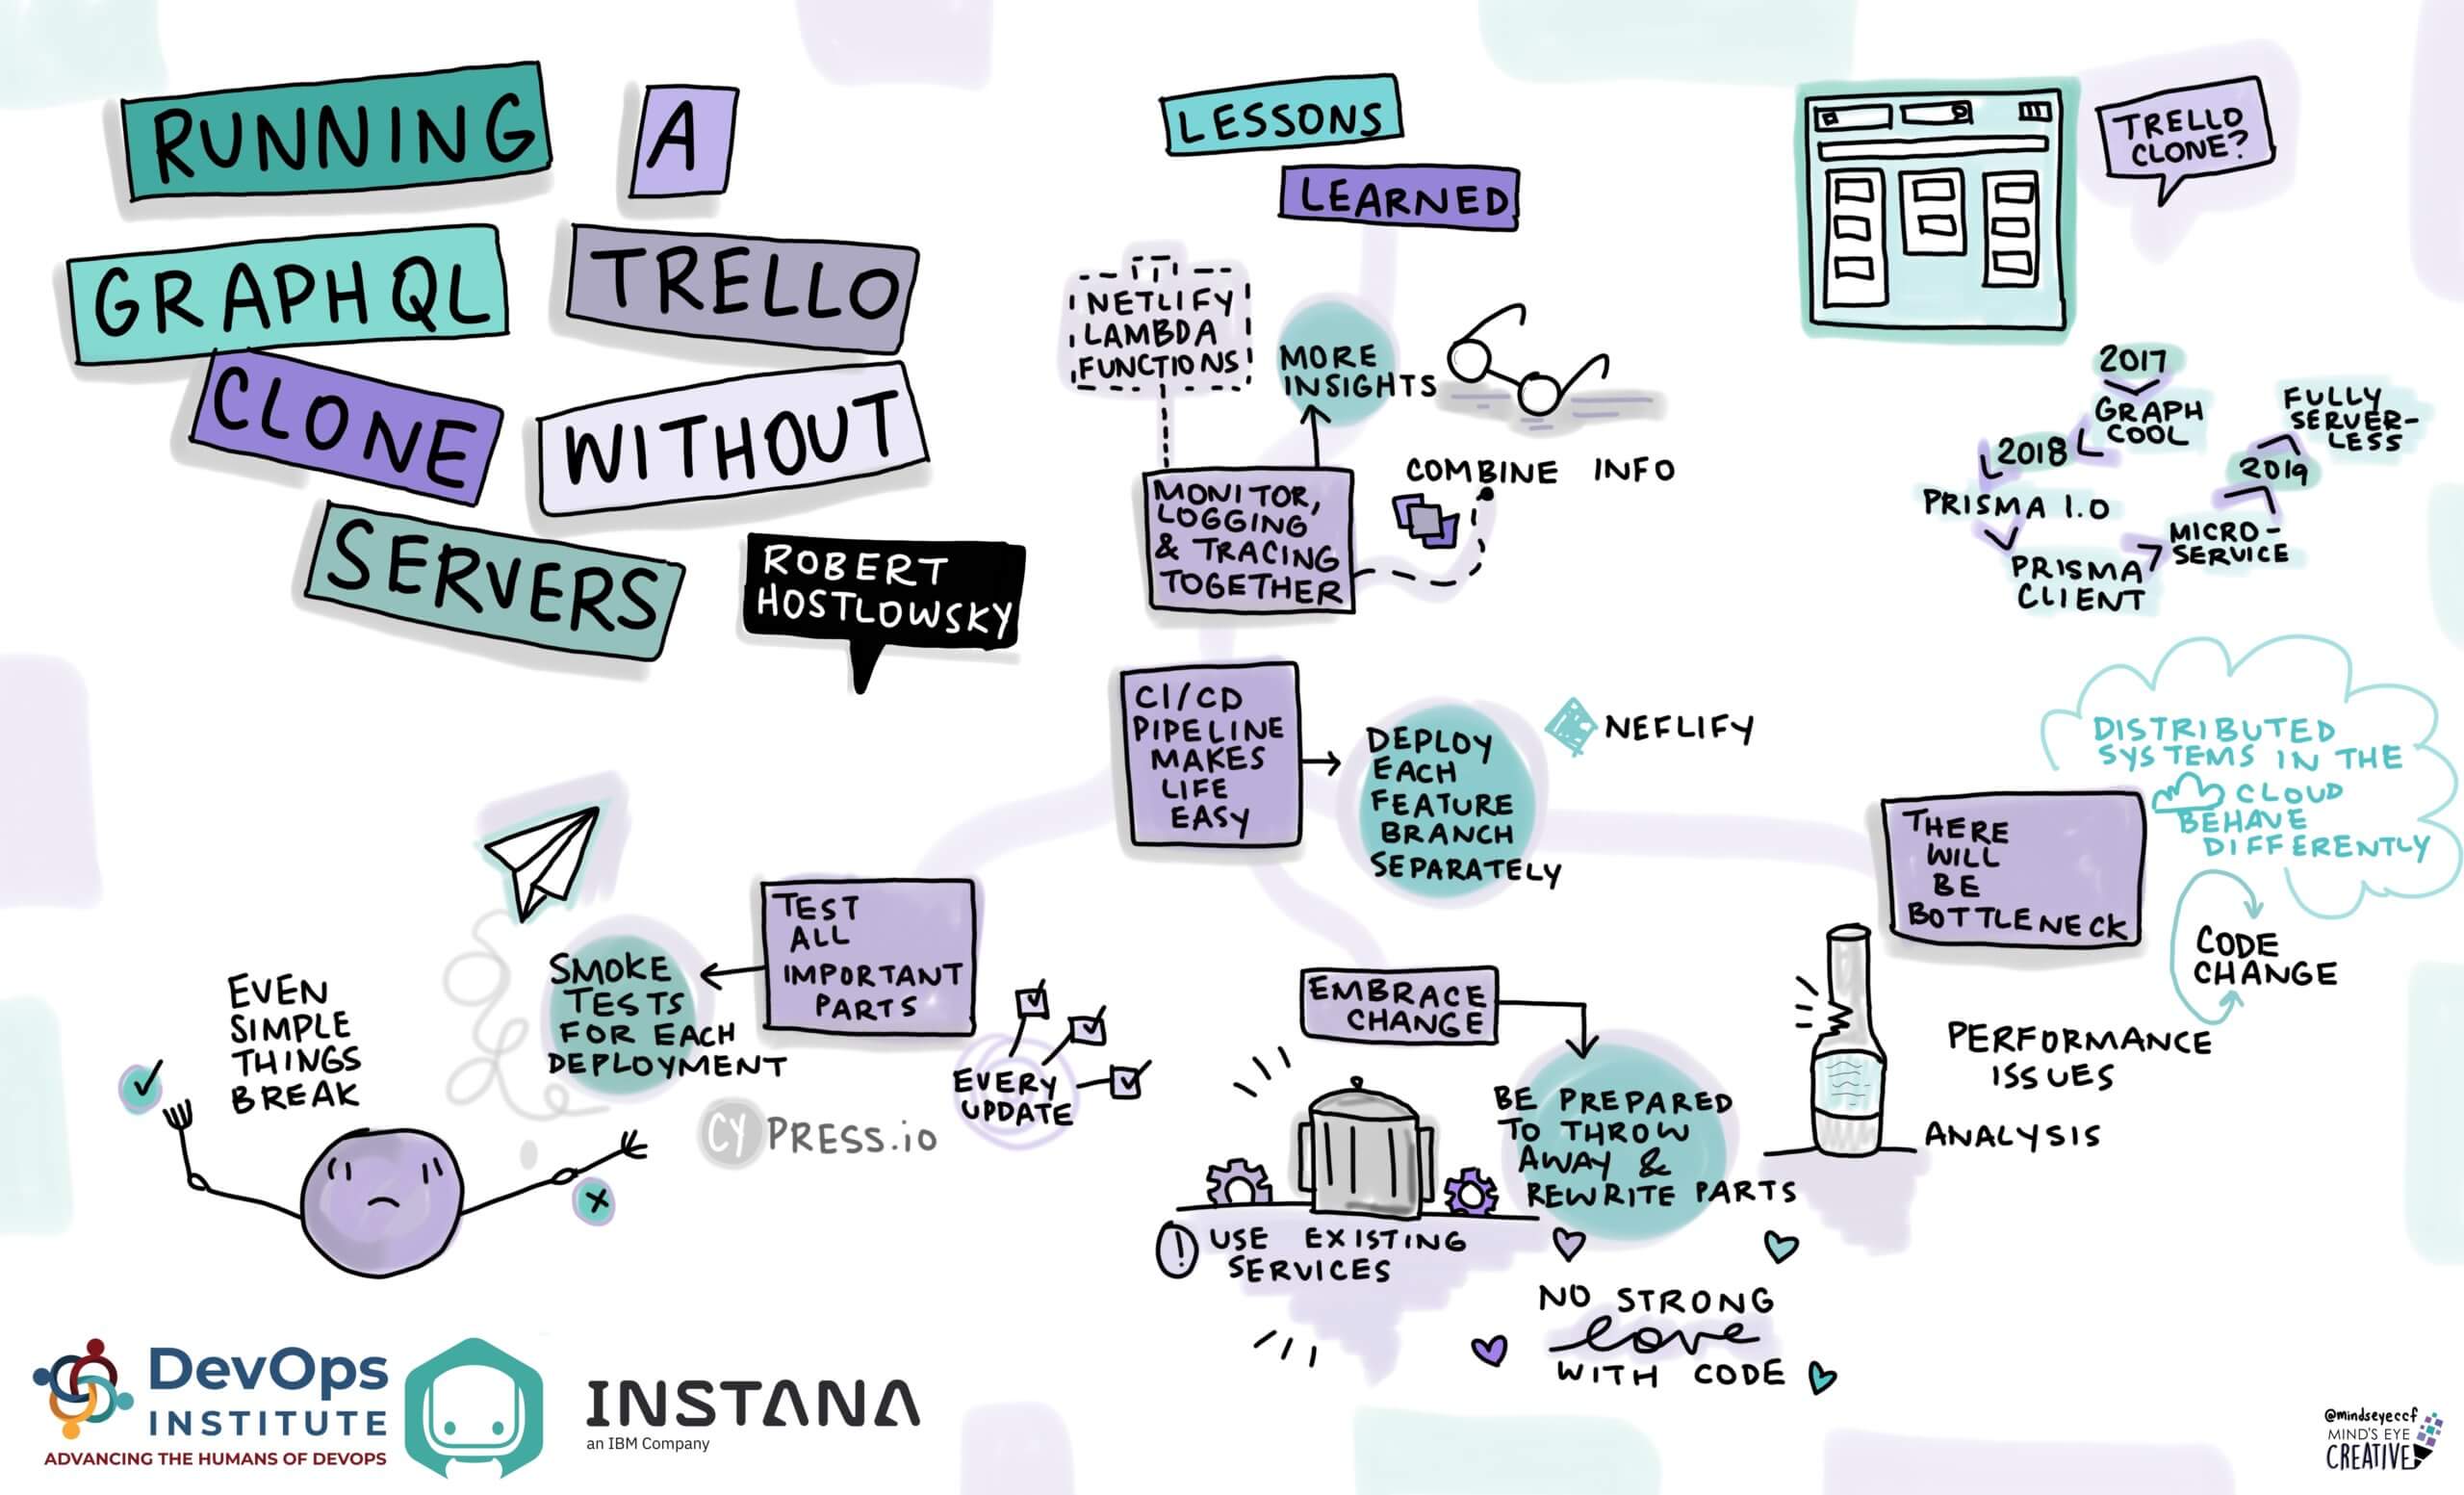 RUNNING A
GRAPHQL TRELLO
CLONE WITHOUT
SERVERS
ROBERT
HOSTLOWSKY
LESSONS
LEARNED
NETLIFY
LAMBDA
FUNCTIONS
MORE
INSIGHTS
COMBINE INFO
MONITOR,
LOGGING
& TRACING
TOGETHER
TRELLO
CLONE?
2017
GRAPH
COOL
2018
PRISMA 1.0
PRISMA
CLIENT
MICRO-
SERVICE
2019
FULLY
SERVER-
LESS
CI/CD
PIPELINE
MAKES
LIFE
EASY
DEPLOY
EACH
FEATURE
BRANCH
SEPARATELY
NEFLIFY
TEST
ALL
IMPORTANT
PARTS
SMOKE
TESTS
FOR EACH
DEPLOYMENT
EVERY
UPDATE
CYPRESS.io
EVEN
SIMPLE
THINGS
BREAK
EMBRACE
CHANGE
BE PREPARED
TO THROW
AWAY &
REWRITE PARTS
! USE EXISTING
SERVICES
NO STRONG
love
WITH CODE
THERE
WILL
BE
BOTTLENECK
DISTRIBUTED
SYSTEMS IN THE
CLOUD
BEHAVE
DIFFERENTLY
CODE
CHANGE
PERFORMANCE
ISSUES
ANALYSIS
DevOps
INSTITUTE
ADVANCING THE HUMANS OF DEVOPS
INSTANA
an IBM Company
@mindseyeccf
MIND'S EYE
CREATIVE